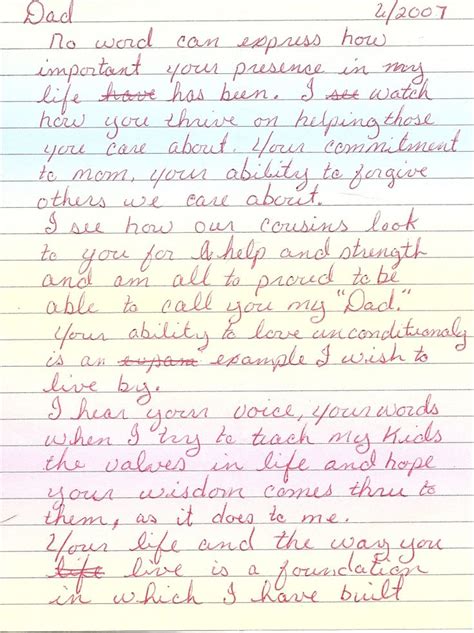 Dad 6/2007
No word can express how
important your presence in my
life have has been. I see watch
how you thrive on helping those
you care about. Your commitment
to mom, your ability to forgive
others we care about.
I see how our cousins look
to you for help and strength
and am all to proud to be
able to call you my "Dad."
Your ability to love unconditionaly
is an example I wish to
live by.
I hear your voice, your words
when I try to teach my Kids
the values in life and hope
your wisdom comes thru to
them, as it does to me.
Your life and the way you
life live is a foundation
in which I have built